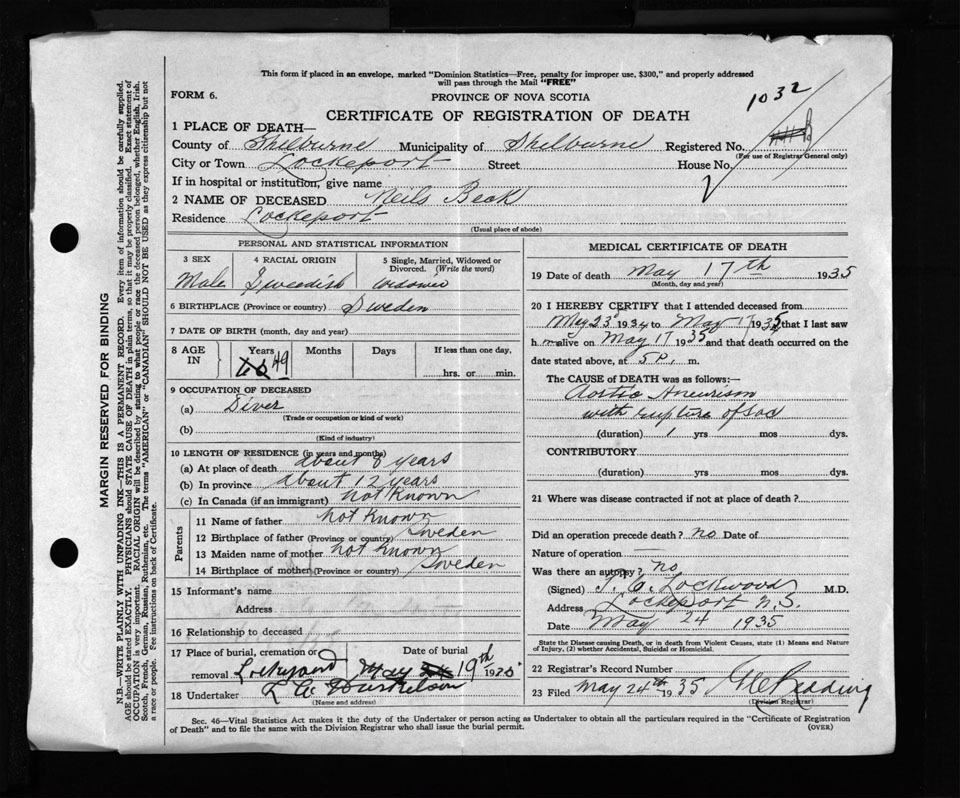 This form if placed in an envelope, marked "Dominion Statistics—Free, penalty for improper use, $300," and properly addressed
will pass through the Mail "FREE"
FORM 6.
PROVINCE OF NOVA SCOTIA
1032
CERTIFICATE OF REGISTRATION OF DEATH
1 PLACE OF DEATH—
County of Shelburne Municipality of Shelburne Registered No.
(For use of Registrar General only)
City or Town Lockeport Street House No.
If in hospital or institution, give name
2 NAME OF DECEASED Neils Beck
Residence Lockeport
(Usual place of abode)
PERSONAL AND STATISTICAL INFORMATION
3 SEX 4 RACIAL ORIGIN 5 Single, Married, Widowed or Divorced. (Write the word)
Male Sweedish
6 BIRTHPLACE (Province or country) Sweden
7 DATE OF BIRTH (month, day and year)
8 AGE IN Years Months Days If less than one day,
49 hrs. or min.
9 OCCUPATION OF DECEASED
(a) Diver
(Trade or occupation or kind of work)
(b)
(Kind of industry)
10 LENGTH OF RESIDENCE (in years and months)
(a) At place of death about 8 years
(b) In province about 12 years
(c) In Canada (if an immigrant) not Known
Parents
11 Name of father not Known
12 Birthplace of father (Province or country) Sweden
13 Maiden name of mother not Known
14 Birthplace of mother (Province or country) Sweden
15 Informant's name
Address
16 Relationship to deceased
17 Place of burial, cremation or removal Date of burial
Lockeport May 19th 19
18 Undertaker
(Name and address)
MEDICAL CERTIFICATE OF DEATH
19 Date of death May 17th 1935
(Month, day and year)
20 I HEREBY CERTIFY that I attended deceased from
May 23 1934 to May 17 1935, that I last saw
h im alive on May 17 1935 and that death occurred on the
date stated above, at 5 P. m.
The CAUSE of DEATH was as follows:—
Aortic Aneurism
with rupture of Sac
(duration) 1 yrs mos dys.
CONTRIBUTORY
(duration) yrs mos dys.
21 Where was disease contracted if not at place of death?
Did an operation precede death? no Date of
Nature of operation —
Was there an autopsy? no
(Signed) Lockwood M.D.
Address Lockeport N.S.
Date May 24 1935
State the Disease causing Death, or in death from Violent Causes, state (1) Means and Nature
of Injury, (2) whether Accidental, Suicidal or Homicidal.
22 Registrar's Record Number
23 Filed May 24th 1935
(Division Registrar)
Sec. 46—Vital Statistics Act makes it the duty of the Undertaker or person acting as Undertaker to obtain all the particulars required in the "Certificate of Registration
of Death" and to file the same with the Division Registrar who shall issue the burial permit.
(OVER)
MARGIN RESERVED FOR BINDING
N.B.—WRITE PLAINLY WITH UNFADING INK—THIS IS A PERMANENT RECORD. Every item of information should be carefully supplied.
AGE should be stated EXACTLY. PHYSICIANS should STATE CAUSE OF DEATH in plain terms, so that it may be properly classified. Exact statement of
OCCUPATION is very important. RACIAL ORIGIN will be described by stating to what people or race the deceased person belonged, whether English, Irish,
Scotch, French, German, Russian, Ruthenian, etc. The terms "AMERICAN" or "CANADIAN" SHOULD NOT BE USED as they express citizenship but not
a race or people. Fee instructions on back of Certificate.